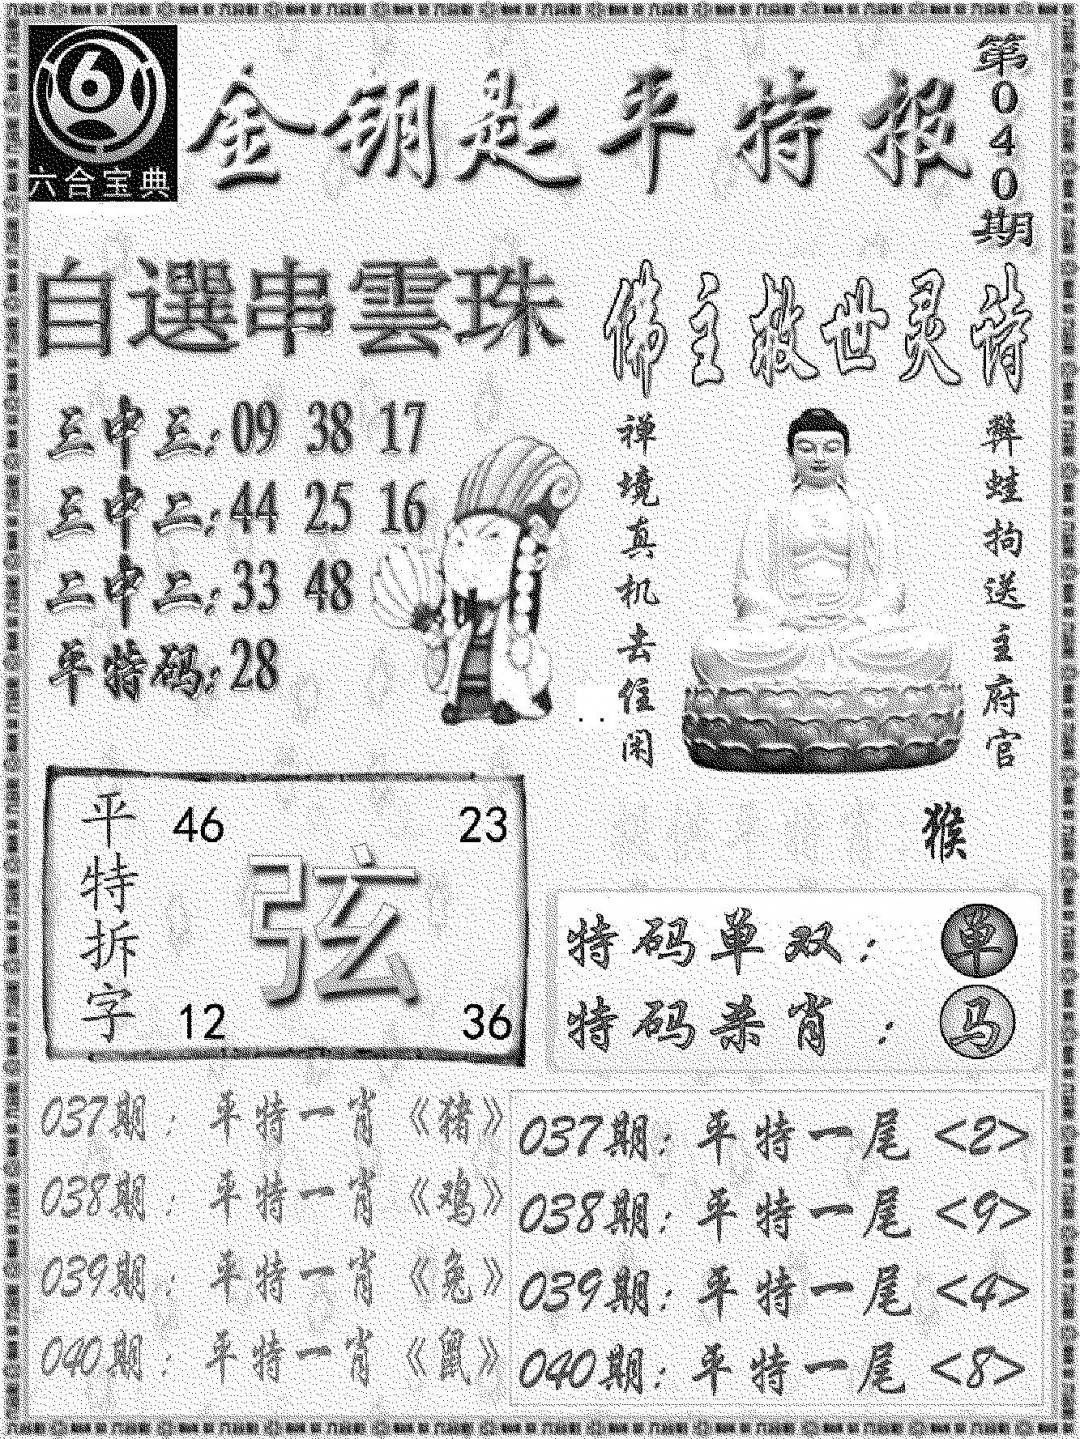 六合宝典
金钥匙平特报
第040期
自選串雲珠
三中三:09 38 17
三中二:44 25 16
二中二:33 48
平特码:28
佛主救世灵诗
弊蛙拘送主府官
禅境真机去住闲
猴
平特拆字
46
23
弦
12
36
特码单双:单
特码杀肖:马
037期:平特一肖《猪》
038期:平特一肖《鸡》
039期:平特一肖《兔》
040期:平特一肖《鼠》
037期:平特一尾<2>
038期:平特一尾<9>
039期:平特一尾<4>
040期:平特一尾<8>